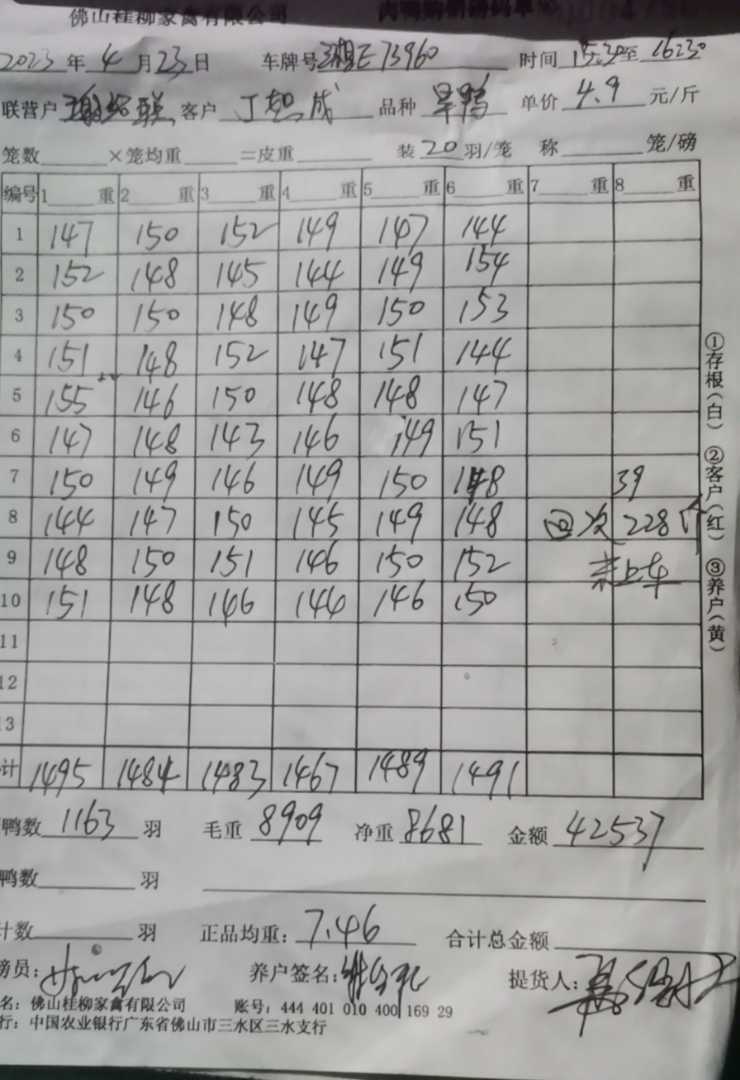 佛山桂柳家禽有限公司
2023年4月23日 车牌号 湘E73960 时间 15:30至16:30
联营户 客户 丁 成 品种 旱鸭 单价 4.9 元/斤
笼数 ×笼均重 =皮重 装20羽/笼 称 笼/磅
编号 1 重 2 重 3 重 4 重 5 重 6 重 7 重 8 重
1 147 150 152 149 147 144
2 152 148 145 144 149 154
3 150 150 148 149 150 153
4 151 148 152 147 151 144
5 155 146 150 148 148 147
6 147 148 143 146 149 151
7 150 149 146 149 150 148 39
8 144 147 150 145 149 148 回次 228
9 148 150 151 146 150 152 上车
10 151 148 146 144 146 150
11
12
13
计 1495 1484 1483 1467 1489 1491
鸭数 1163 羽 毛重 8909 净重 8681 金额 42537
鸭数 羽
计数 羽 正品均重: 7.46 合计总金额
磅员: 养户签名: 提货人:
名: 佛山桂柳家禽有限公司 账号: 444 401 010 400 169 29
行: 中国农业银行广东省佛山市三水区三水支行
①存根(白) ②客户(红) ③养户(黄)